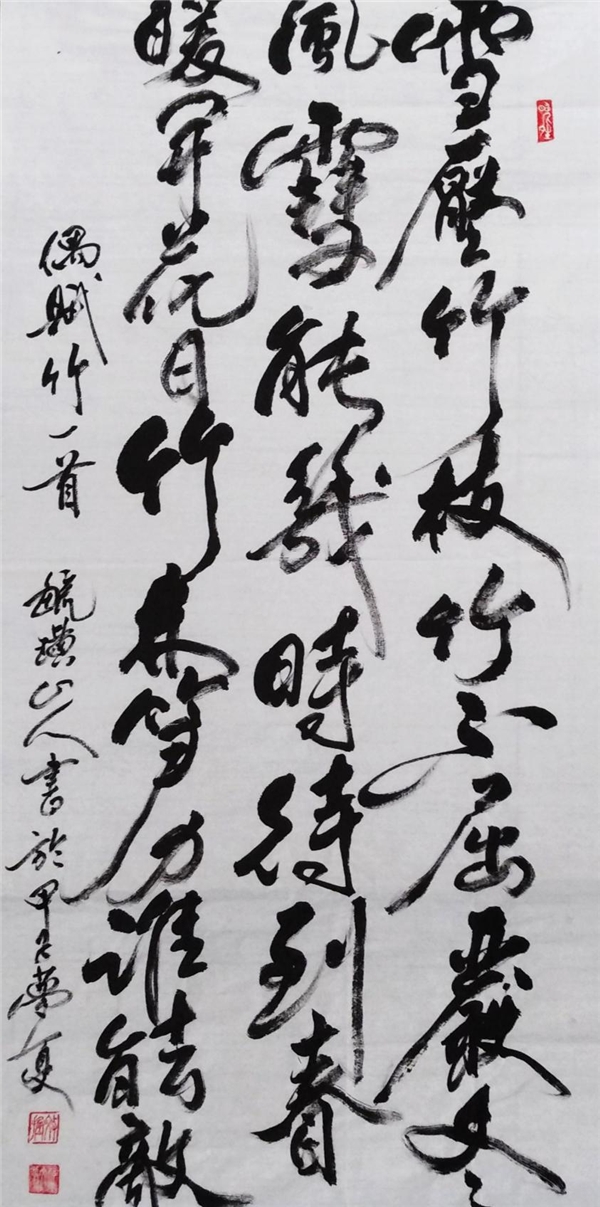 雪壓竹枝竹不屈嚴冬
風能幾時待到春
暖開花日竹林笋力誰能敵
偶賦竹一首 毓璜山人書於甲辰夏